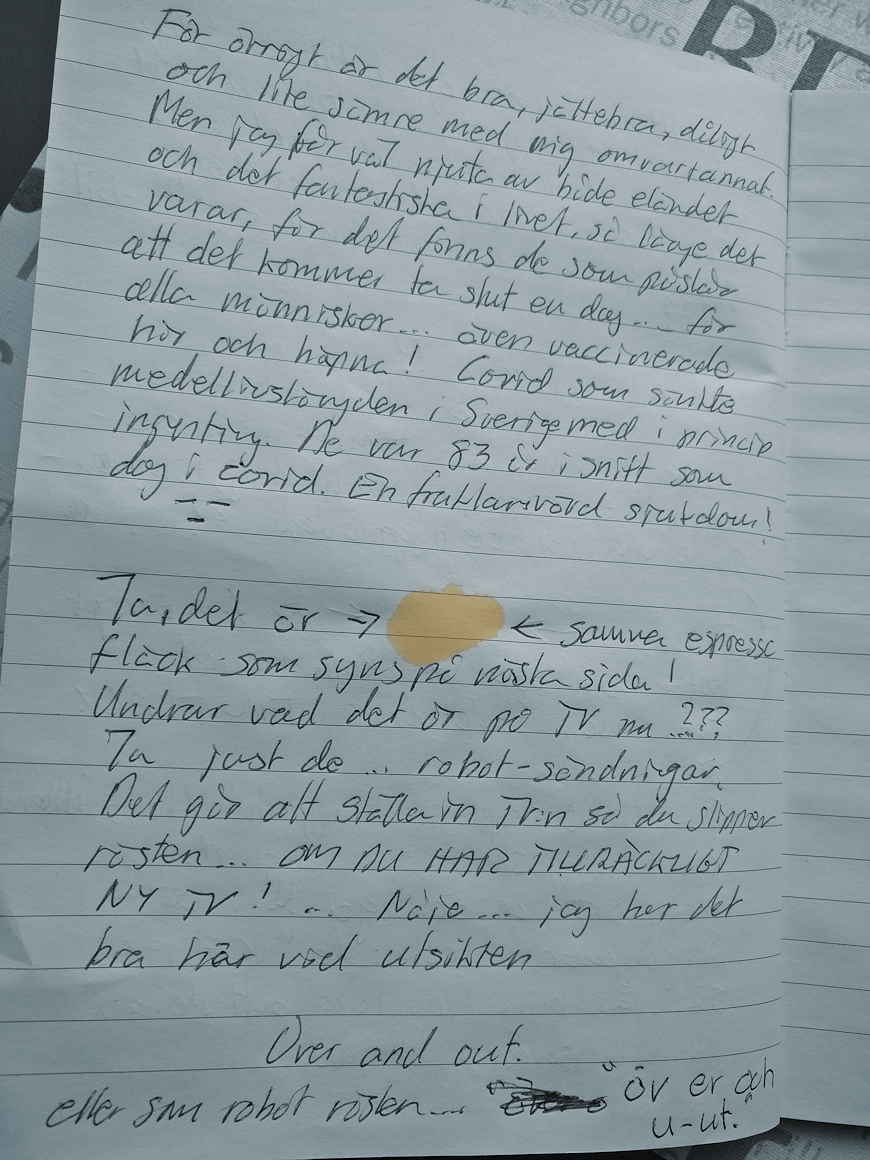 För örrogt är det bra, jättebra, dåligt
och lite sämre med mig omvartannat.
Men jag får väl njuta av både eländet
och det fantastiska i livet, så länge det
varar, för det finns de som påstår
att det kommer ta slut en dag... för
alla människor... även vaccinerade
hör och häpna! Covid som sänkte
medellivslängden i Sverige med i princip
ingenting. De var 83 år i snitt som
dog i covid. En fruktansvärd sjukdom!
Ja, det är → ← samma espresso
fläck som syns på nästa sida!
Undrar vad det är på TV nu ...???
Ja just de... robot-sändningar.
Det går att ställa in TV:n så du slipper
rösten... OM DU HAR TILLRÄCKLIGT
NY TV! ... Näje... jag har det
bra här vid utsikten
Over and out.
eller som robot rösten.... "öv er och
u-ut."
neighbors